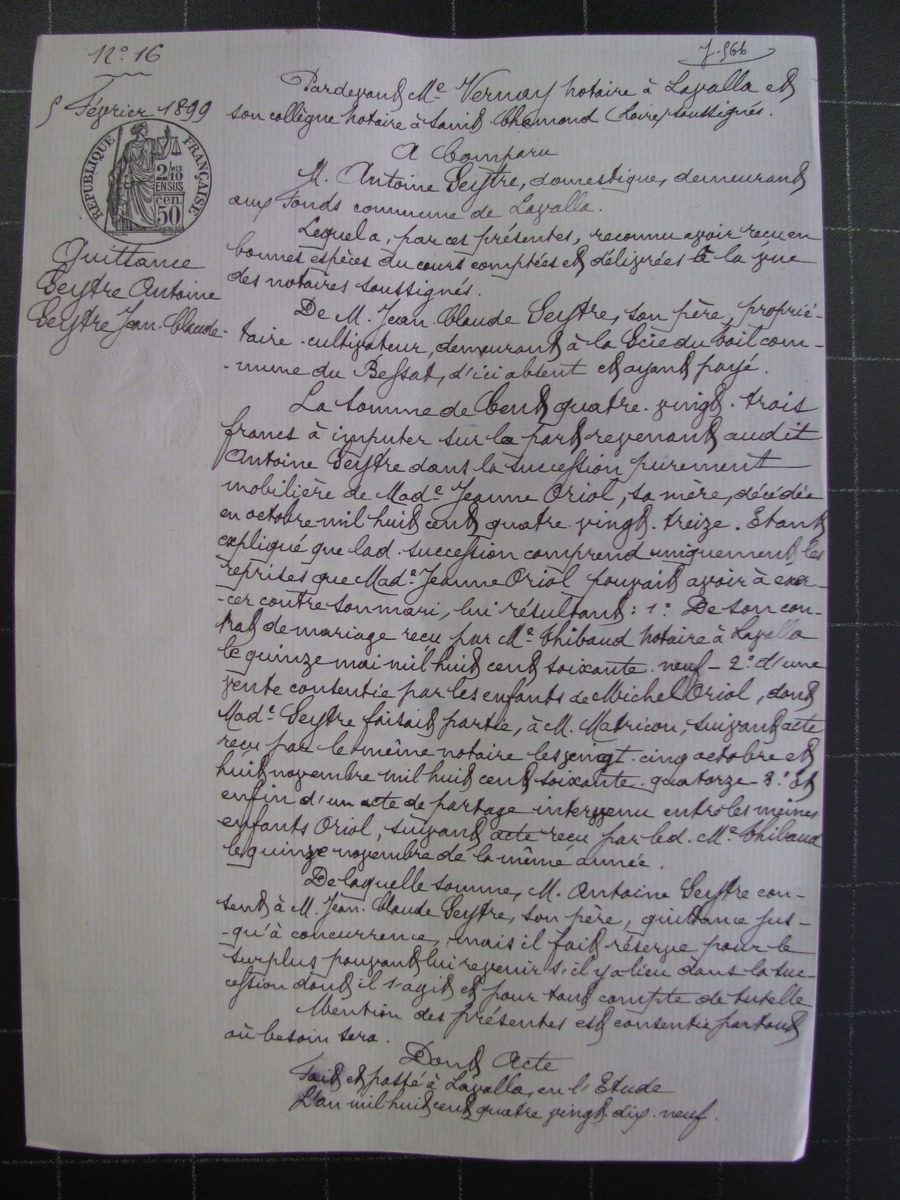 N° 16
J. 566
5 Février 1899
RÉPUBLIQUE FRANÇAISE
2/10 EN SUS
50 CEN.
Quittance
Seytre Antoine
Seytre Jean-Claude-
Pardevant Me Vernay notaire à Lavalla et
son collègue notaire à Saint Chamond (Loire) soussignés.
A Comparu
M. Antoine Seytre, domestique, demeurant
aux Fonds commune de Lavalla.
Lequel a, par ces présentes, reconnu avoir reçu en
bonnes espèces du cours comptées et délivrées à la vue
des notaires soussignés.
De M. Jean-Claude Seytre, son père, proprié-
taire-cultivateur, demeurant à la Scie du boit com-
-mune du Bessat, d'ici absent et ayant payé.
La somme de Cent quatre-vingt-trois
francs à imputer sur la part revenant audit
Antoine Seytre dans la succession purement
mobilière de Made Jeanne Oriol, sa mère, décédée
en octobre mil huit cent quatre-vingt-treize. Etant
expliqué que lad. succession comprend uniquement les
reprises que Made Jeanne Oriol pouvait avoir à exer-
-cer contre son mari, lui résultant: 1° De son con-
trat de mariage reçu par Me Thibaud notaire à Lavalla
le quinze mai mil huit cent soixante-neuf - 2° d'une
vente consentie par les enfants de Michel Oriol, dont
Made Seytre faisait partie, à M. Matricon, suivant acte
reçu par le même notaire les vingt-cinq octobre et
huit novembre mil huit cent soixante-quatorze - 3° et
enfin d'un acte de partage intervenu entre les mêmes
enfants Oriol, suivant acte reçu par led. Me Thibaud
le quinze novembre de la même année.
De laquelle somme, M. Antoine Seytre con-
sent à M. Jean-Claude Seytre, son père, quittance jus-
-qu'à concurrence, mais il fait réserve pour le
surplus pouvant lui revenir s'il y a lieu dans la suc-
cession dont il s'agit et pour tout compte de tutelle
Mention des présentes est consentie partout
où besoin sera.
Dont Acte
Fait et passé à Lavalla, en l'Etude
L'an mil huit cent quatre vingt dix-neuf.